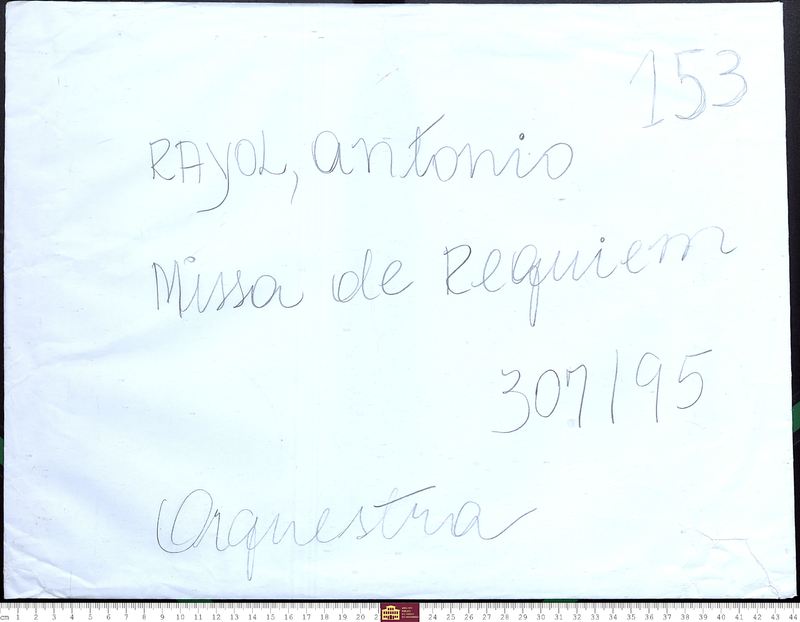 153
RAYOL, Antonio
Missa de Requiem
307/95
Orquestra
cm 1 2 3 4 5 6 7 8 9 10 11 12 13 14 15 16 17 18 19 20 24 25 26 27 28 29 30 31 32 33 34 35 36 37 38 39 40 41 42 43 44